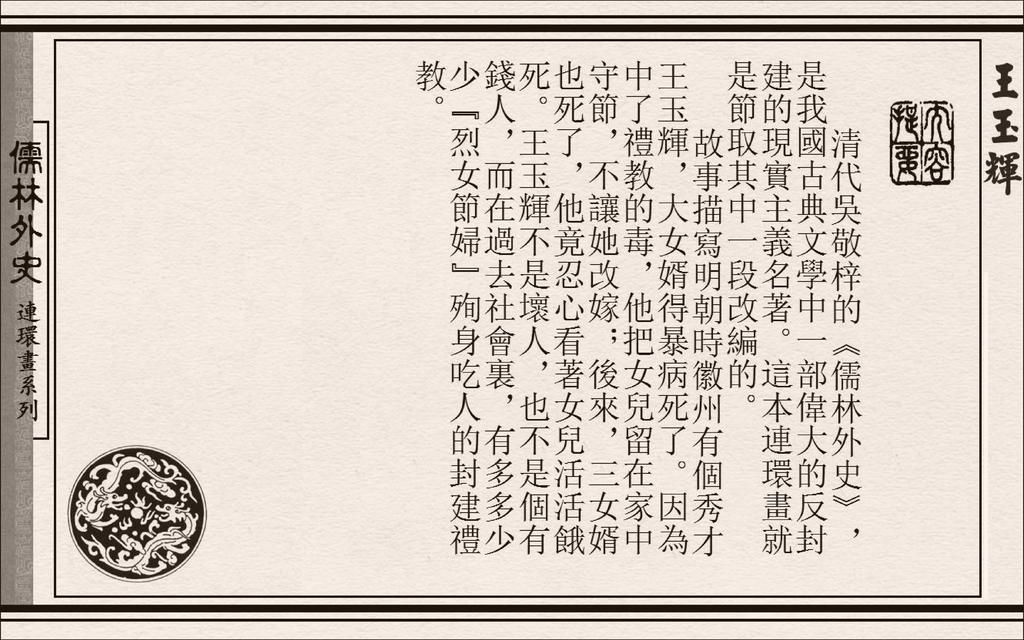 王玉輝
內容
提要
清代吳敬梓的《儒林外史》，
是我國古典文學中一部偉大的反封
建的現實主義名著。這本連環畫就
是節取其中一段改編的。
故事描寫明朝時徽州有個秀才
王玉輝，大女婿得暴病死了。因為
中了禮教的毒，他把女兒留在家中
守節，不讓她改嫁；後來，三女婿
也死了，他竟忍心看著女兒活活餓
死。王玉輝不是壞人，也不是個有
錢人，而在過去社會裏，有多多少
少『烈女節婦』殉身吃人的封建禮
教。
儒林外史 連環畫系列